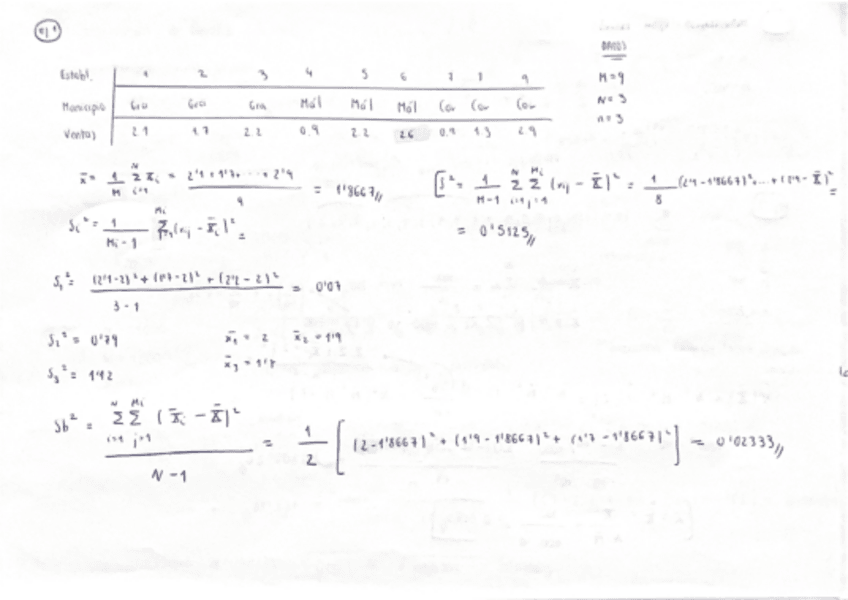 Ej 1
DATOS
M = 9
N = 3
n = 3
Establ. 1 2 3 4 5 6 7 8 9
Municipio Gra Gra Gra Mál Mál Mál Cor Cor Cor
Ventas 2.1 1.7 2.2 0.9 2.2 2.6 0.9 1.3 2.9
x̄ = 1/M Σ_{i=1}^{N} x_i = (2'1 + 1'7 + ... + 2'9)/9 = 1'8667//
S² = 1/(M-1) Σ_{i=1}^{N} Σ_{j=1}^{Mi} (x_ij - X̿)² = 1/8 (2'1 - 1'8667)² + ... + (2'9 - X̿)² =
= 0'5125//
S_i² = 1/(Mi-1) Σ_{j=1}^{Mi} (x_ij - x̄_i)² =
S_1² = ((2'1-2)² + (1'7-2)² + (2'2-2)²)/(3-1) = 0'07
S_2² = 0'79
x̄_1 = 2 x̄_2 = 1'9
S_3² = 1'12
x̄_3 = 1'7
Sb² = Σ_{i=1}^{N} Σ_{j=1}^{Mi} (x̄_i - X̿)² / (N-1) = 1/2 [(2-1'8667)² + (1'9-1'8667)² + (1'7-1'8667)²] = 0'02333//